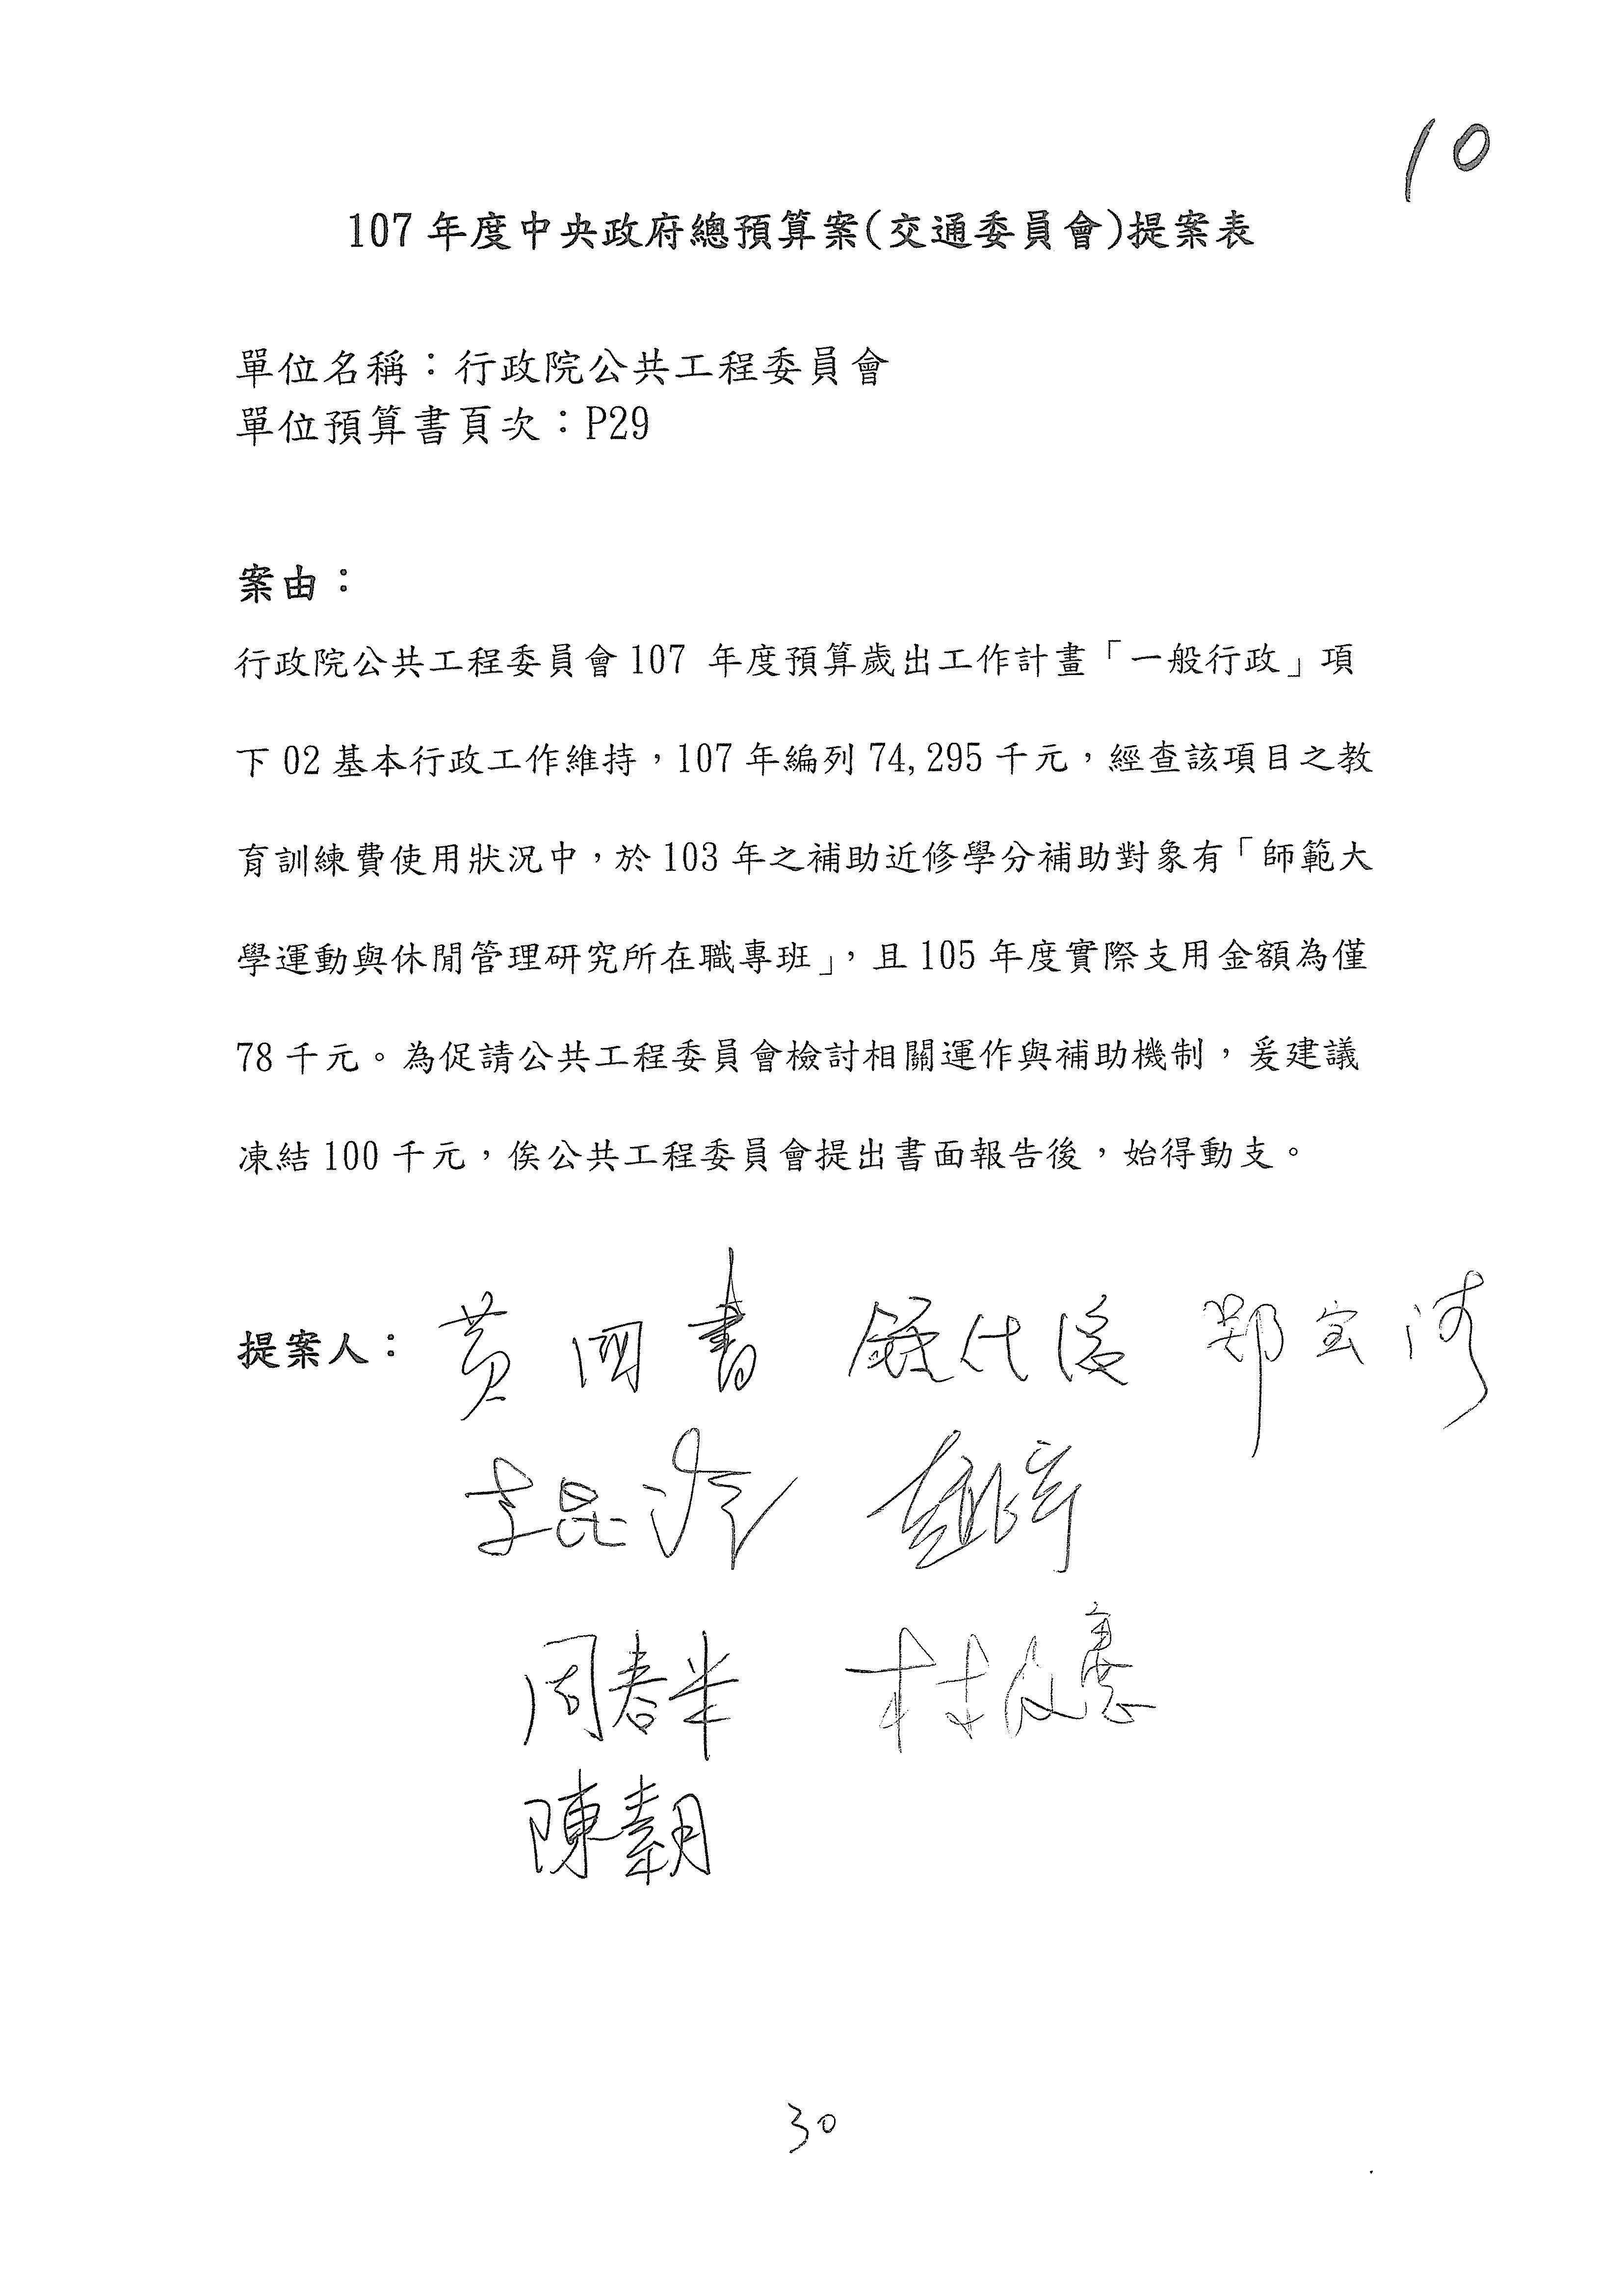 10
107 年度中央政府總預算案(交通委員會)提案表
單位名稱：行政院公共工程委員會
單位預算書頁次：P29
案由：
行政院公共工程委員會107 年度預算歲出工作計畫「一般行政」項
下 02 基本行政工作維持，107 年編列 74,295 千元，經查該項目之教
育訓練費使用狀況中，於 103 年之補助近修學分補助對象有「師範大
學運動與休閒管理研究所在職專班」，且 105 年度實際支用金額為僅
78 千元。為促請公共工程委員會檢討相關運作與補助機制，爰建議
凍結 100 千元，俟公共工程委員會提出書面報告後，始得動支。
提案人： 黃國書 鄭宝清
李昆澤
周春米 林俊憲
30